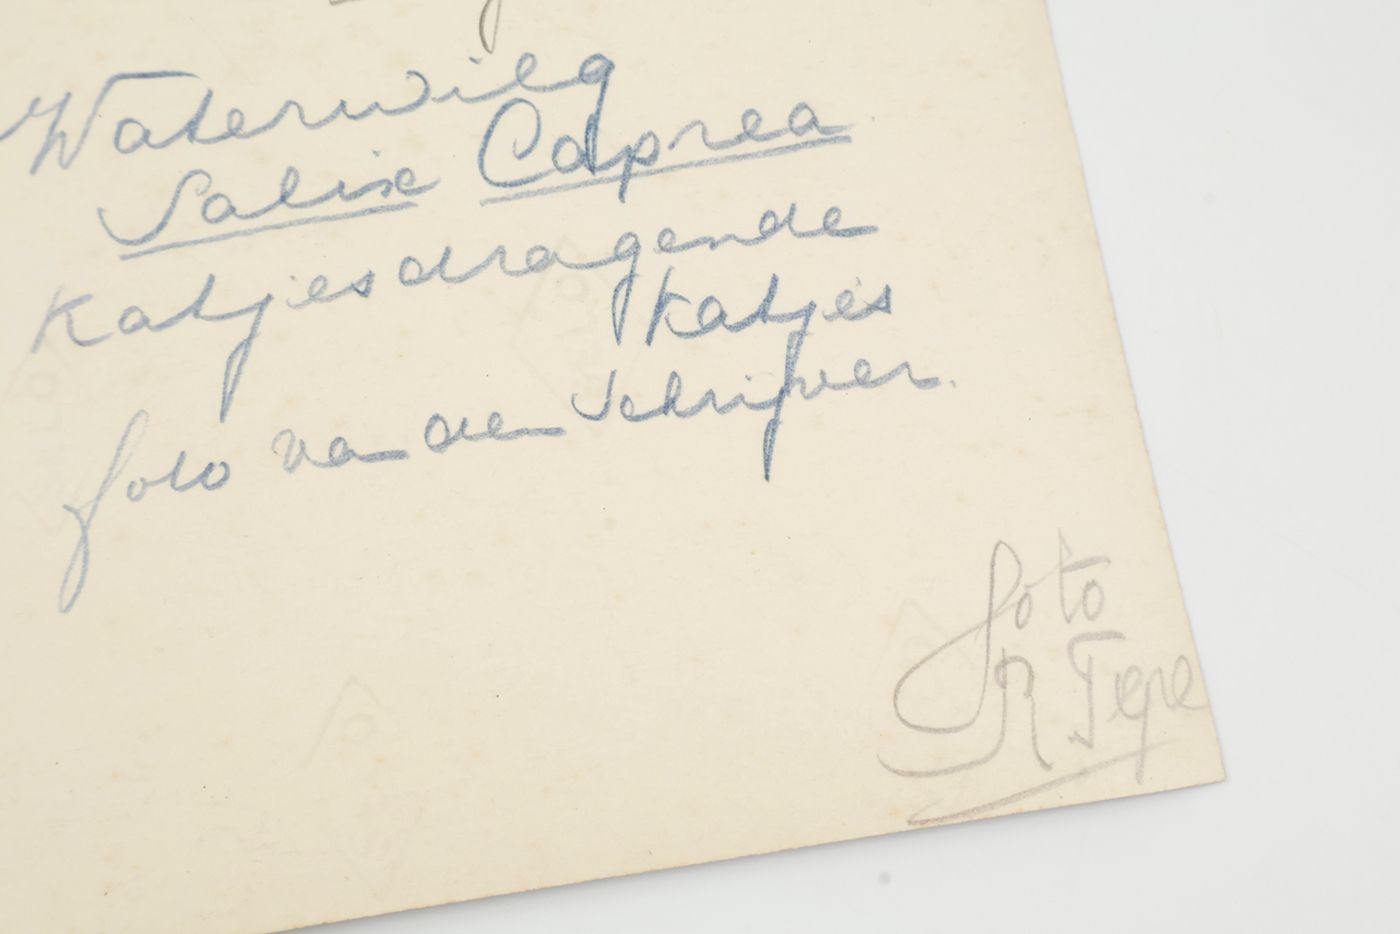 Waterwilg
Salix Caprea
Katjesdragende
Katjes
foto van den Schrijver.
foto
R Tepe